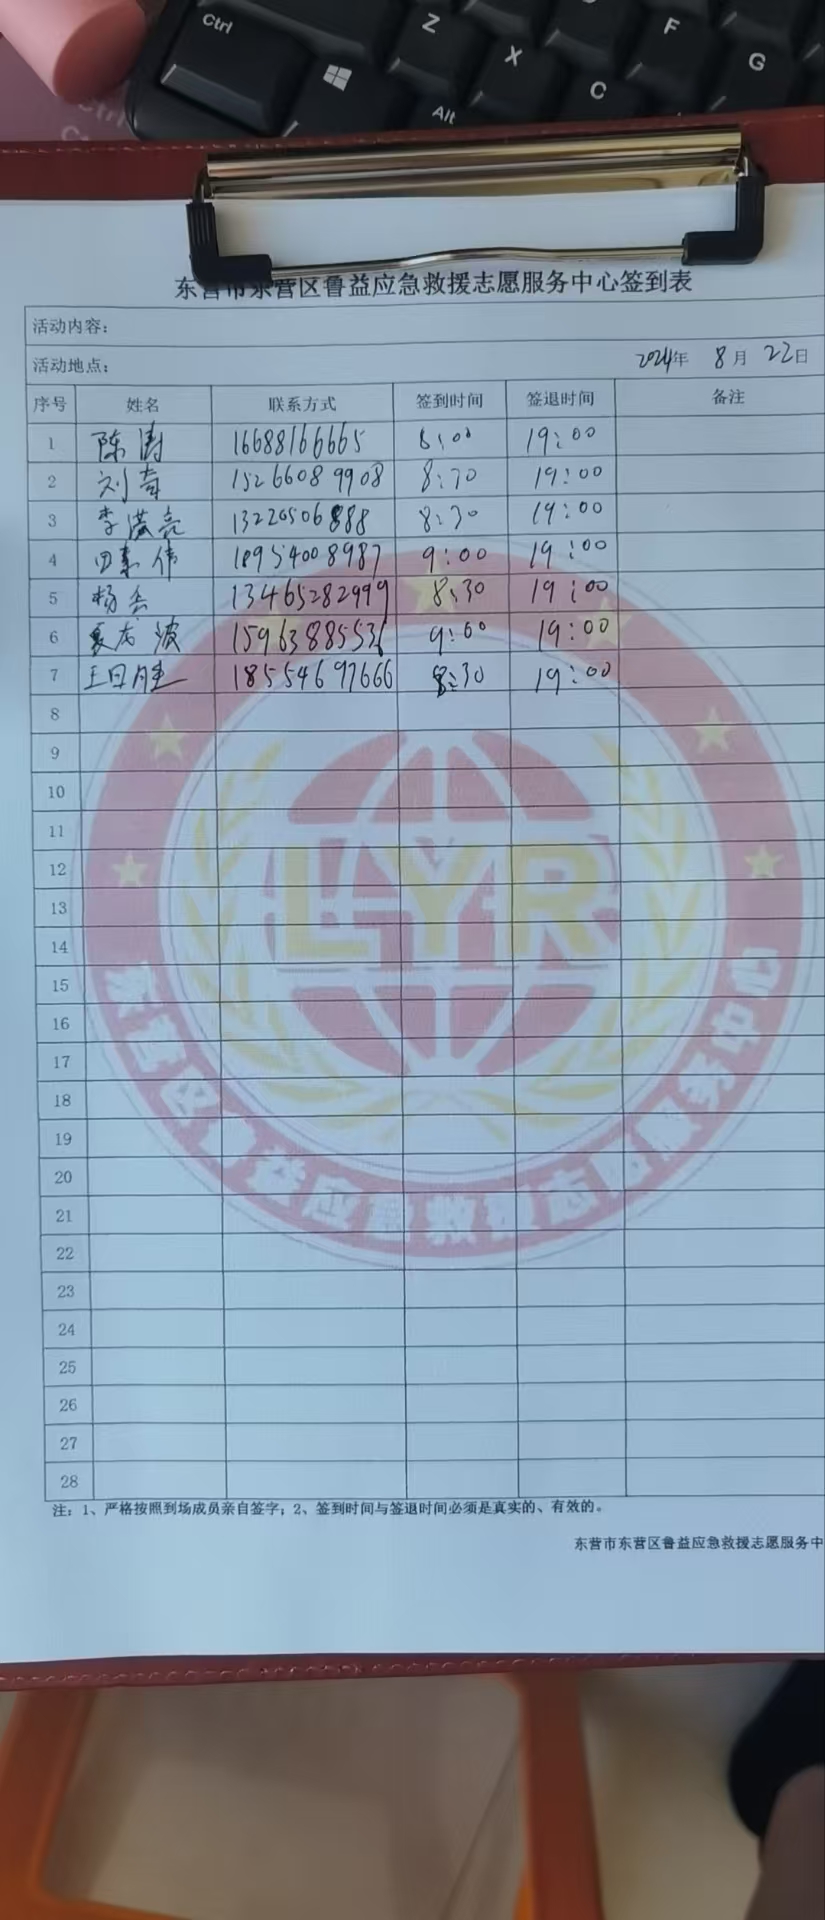 Ctrl
Z
X
C
F
G
Alt
东营市东营区鲁益应急救援志愿服务中心签到表
活动内容：
活动地点： 2024年 8月 22日
序号 姓名 联系方式 签到时间 签退时间 备注
1 陈涛 16688166665 8:00 19:00
2 刘奇 15266089908 8:30 19:00
3 李满亮 13220506888 8:30 19:00
4 18954008987 9:00 19:00
5 杨 13465282999 8:30 19:00
6 波 15963885536 9:00 19:00
7 王日胜 18554697666 8:30 19:00
8
9
10
11
12
13
14
15
16
17
18
19
20
21
22
23
24
25
26
27
28
LYR
东营区鲁益应急救援志愿服务中心
注：1、严格按照到场成员亲自签字；2、签到时间与签退时间必须是真实的、有效的。
东营市东营区鲁益应急救援志愿服务中